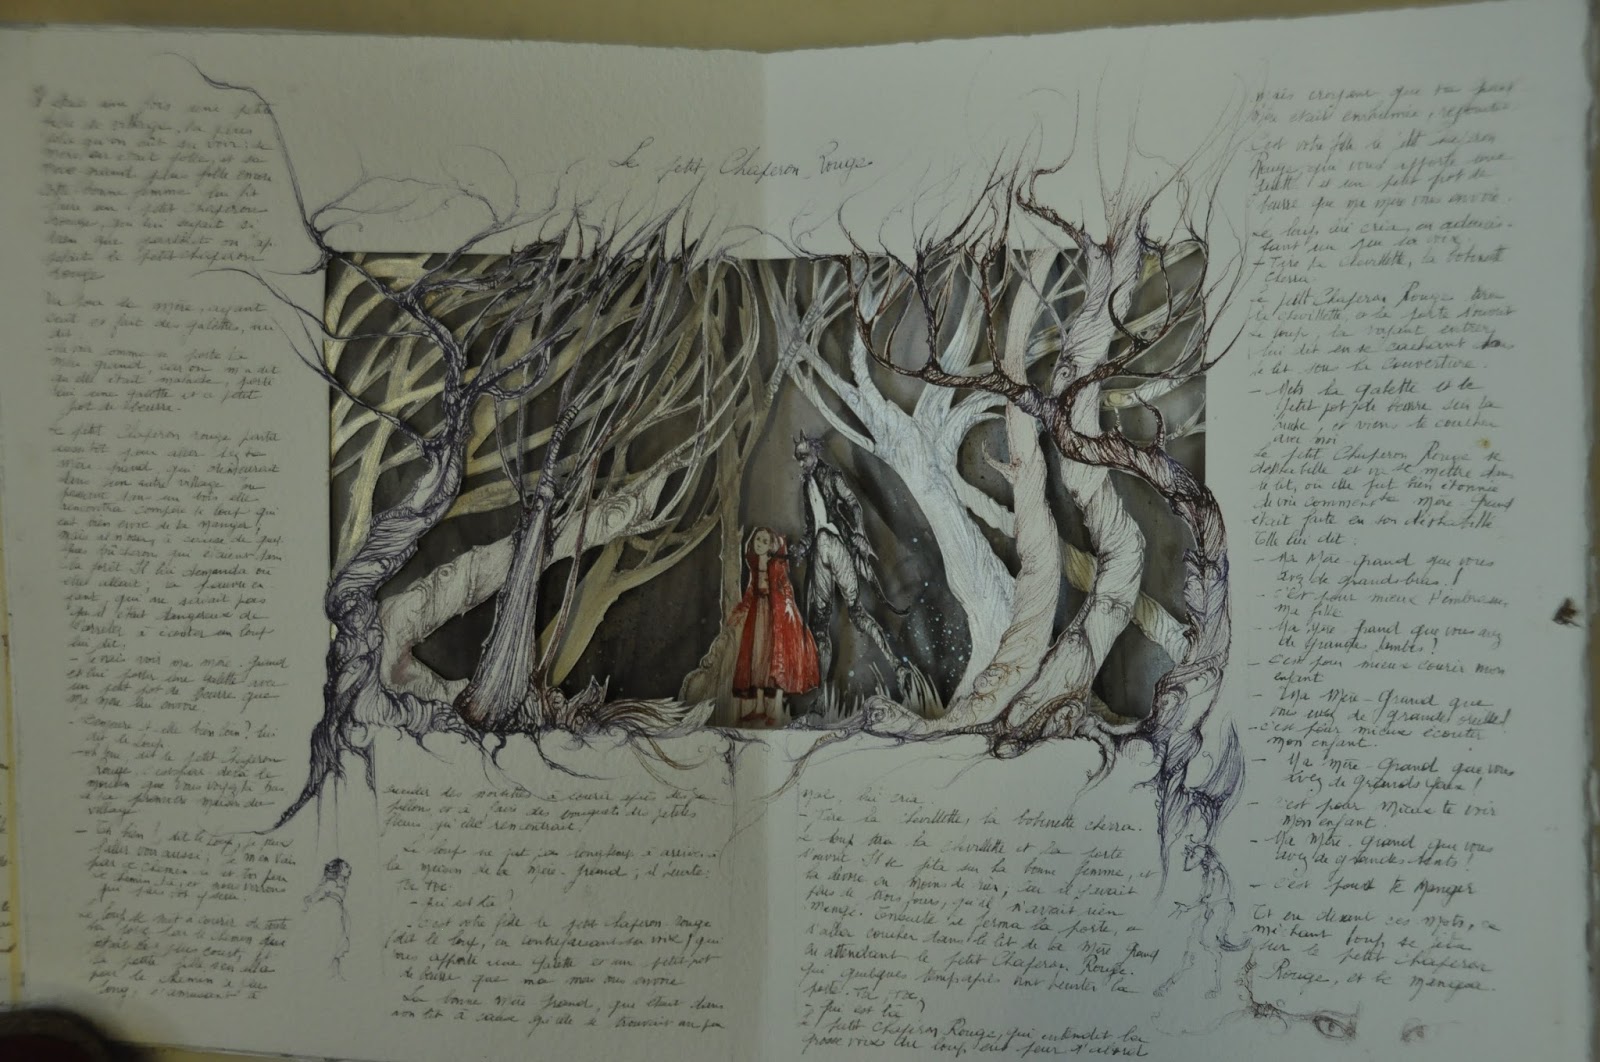 Le petit Chaperon Rouge
fois une petite
de village, la plus
qu'on eût su voir : sa
mère en était folle, et sa
mère grand plus folle encore
cette bonne femme lui fit
faire un petit chaperon
rouge, qui lui seyait si
bien que partout on l'ap-
pelait le petit Chaperon
Rouge
la mère, ayant
cuit et fait des galettes, lui
dit
va voir comme se porte ta
mère grand, car on m'a dit
qu'elle était malade, porte
lui une galette et ce petit
pot de beurre.
Le petit Chaperon rouge partit
aussitôt pour aller
mère grand, qui demeurait
dans un autre village
passant dans un bois elle
rencontra compère le loup qui
eut bien envie de la manger,
mais il n'osa, à cause de quel-
ques bûcherons qui étaient dans
la forêt. Il lui demanda où
elle allait ; la pauvre en-
fant, qui ne savait pas
qu'il était dangereux de
s'arrêter à écouter un loup
lui dit :
- Je vais voir ma mère-grand
et lui porter une galette avec
un petit pot de beurre que
ma mère lui envoie.
- Demeure-t-elle bien loin ? lui
dit le Loup
- Oh oui, dit le petit Chaperon
rouge, c'est par delà le
moulin que vous voyez
à la première maison du
village
- Eh bien ! dit le Loup, je veux
l'aller voir aussi ; je m'en vais
par ce chemin-ci et toi par
ce chemin-là, et nous verrons
qui plus tôt y sera.
Le loup se mit à courir de toute
sa force par le chemin qui
était le plus court, et
la petite fille s'en alla
par le chemin le plus
long, s'amusant à
cueillir des noisettes à courir après des pa-
pillons et à faire des bouquets de petites
fleurs qu'elle rencontrait.
Le loup ne fut pas longtemps à arriver à
la maison de la Mère-grand ; il heurte :
Toc toc
- Qui est là ?
- C'est votre fille le petit chaperon rouge
(dit le loup, en contrefaisant sa voix) qui
vous apporte une galette et un petit pot
de beurre que ma mère vous envoie
La bonne mère grand, qui était dans
son lit à cause qu'elle se trouvait un peu
mal, lui cria
- Tire la chevillette, la bobinette cherra.
Le loup tira la chevillette et la porte
s'ouvrit. Il se jeta sur la bonne femme, et
la dévora en moins de rien, car il y avait
plus de trois jours, qu'il n'avait rien
mangé. Ensuite il ferma la porte, et
s'alla coucher dans le lit de la Mère grand
en attendant le petit Chaperon Rouge.
qui quelques temps après vint heurter la
porte. Toc, toc
- Qui est là ?
Le petit Chaperon Rouge, qui entendit la
grosse voix du loup eut peur d'abord
mais croyant que sa grand
mère était enrhumée, répondit
C'est votre fille le petit Chaperon
Rouge, qui vous apporte une
galette et un petit pot de
beurre que ma mère vous envoie.
Le loup lui cria, en adoucis-
sant un peu sa voix
- Tire la chevillette, la bobinette
cherra.
Le petit Chaperon Rouge tira
la chevillette, et la porte s'ouvrit
Le loup, la voyant entrer,
lui dit en se cachant dans
le lit sous la couverture.
- Mets la galette et le
petit pot de beurre sur la
huche, et viens te coucher
avec moi
Le petit Chaperon Rouge se
déshabille et va se mettre dans
le lit, où elle fut bien étonnée
de voir comment sa Mère Grand
était faite en son déshabillé
Elle lui dit :
- Ma Mère-grand que vous
avez de grands bras !
- C'est pour mieux t'embrasser,
ma fille
- Ma Mère-grand que vous avez
de grandes jambes !
- C'est pour mieux courir mon
enfant
- Ma Mère-Grand que
vous avez de grandes oreilles !
- C'est pour mieux écouter
mon enfant.
- Ma Mère-Grand que vous
avez de grands yeux !
- C'est pour mieux te voir
mon enfant.
- Ma Mère-Grand que vous
avez de grandes dents !
- C'est pour te manger
Et en disant ces mots, ce
méchant loup se jeta
sur le petit Chaperon
Rouge, et le mangea.